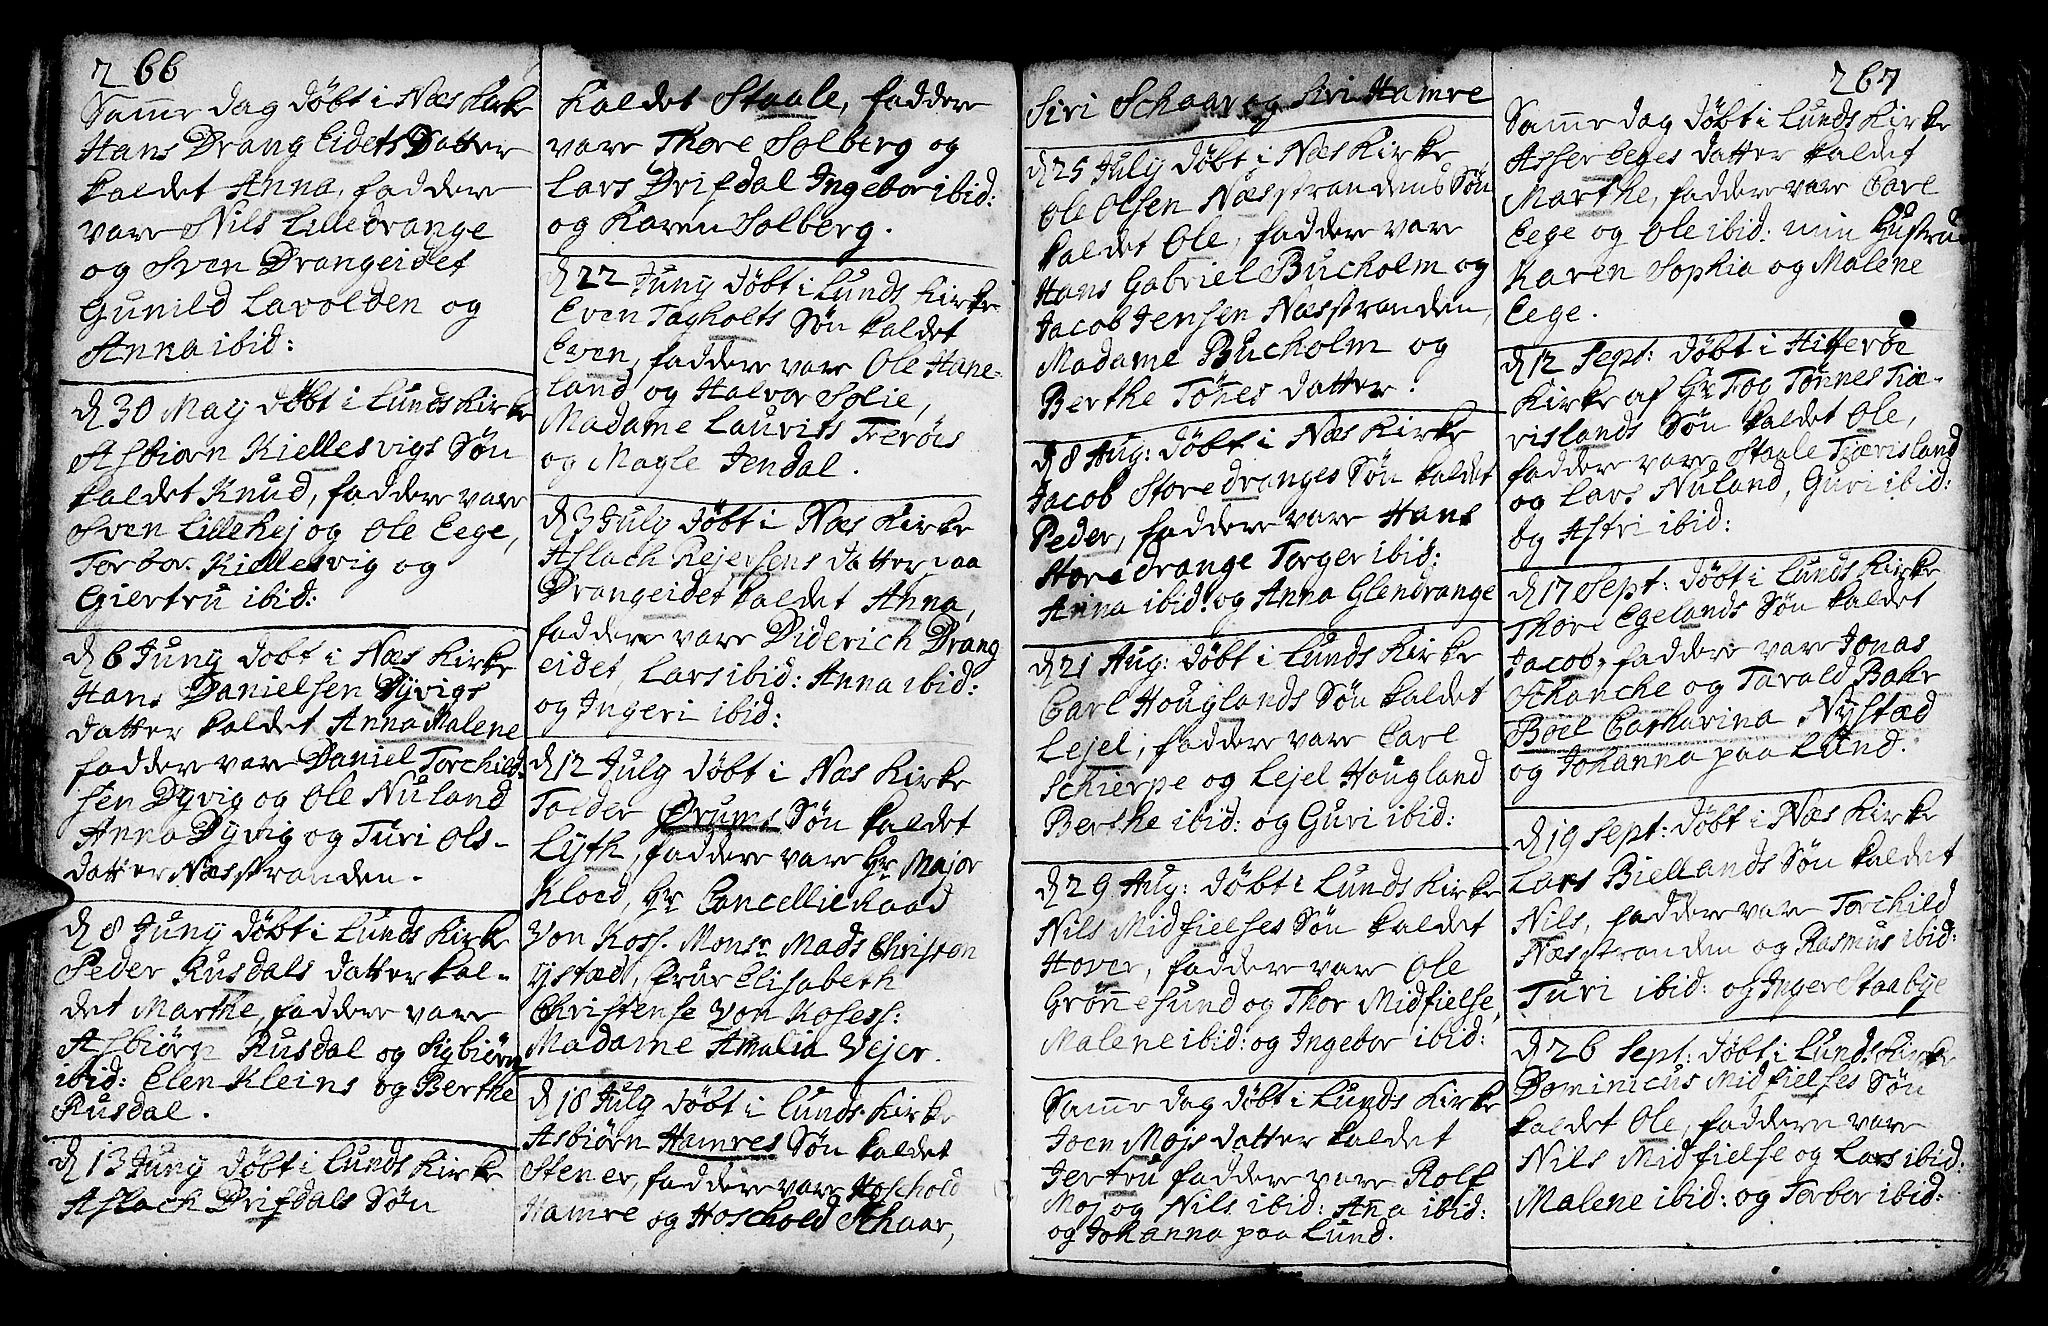 266
Samme dag døbt i Næs Kirke
Hans Drang Eidets Datter
kaldet Anna, faddere
vare Nils Lilledrange
og Sven Drangeidet
Gunild Lavolden og
Anna ibid:
d 30 May døbt i Lunds Kirke
Asbiørn Kiellesvigs Søn
kaldet Knud, faddere vare
Sven Lillehej og Ole Eege,
Torbor Kiellesvig og
Giertru ibid:
d 6 Juny døbt i Næs Kirke
Hans Danielsen Dyvigs
datter kaldet Anna Malene
faddere vare Daniel Torchild-
sen Dyvig og Ole Nuland
Anna Dyvig og Turi Ols-
datter Næsstranden.
d 8 Juny døbt i Lunds Kirke
Peder Rusdals datter kal-
det Marthe, faddere vare
Asbiørn Rusdal og Sigbiørn
ibid: Elen Kleins og Berthe
Rusdal.
d 13 Juny døbt i Lunds Kirke
Aslach Drifdals Søn
kaldet Staale, faddere
vare Thore Solberg og
Lars Drifdal Ingebor ibid:
og Karen Solberg.
d 22 Juny døbt i Lunds Kirke
Even Tagholts Søn kaldet
Even, faddere vare Ole Hane-
land og Halvor Solie,
Madame Lauriss Trerøes
og Magle Jendal.
d 3 July døbt i Næs Kirke
Aslach Rejersens datter paa
Drangeidet kaldet Anna,
faddere vare Diderich Drang
eidet, Lars ibid: Anna ibid:
og Ingeri ibid:
d 12 July døbt i Næs Kirke
Tolder Ørums Søn kaldet
Lyth, faddere vare Hr Major
Kloed, Hr Cancellie Raad
Von Koss. Monsr Mads Christen
ystæd, Frue Elisabeth
Christense Von Kosess:
Madame Amalia Vejer.
d 18 July døbt i Lunds Kirke
Asbiørn Hamres Søn kaldet
Stener, faddere vare Hoschold
Hamre og Hoschold Schaar,
267
Siri Schaar og Siri Hamre
d 25 July døbt i Næs Kirke
Ole Olsen Næsstrandens Søn
kaldet Ole, faddere vare
Hans Gabriel Bucholm og
Jacob Jensen Næsstranden,
Madame Bucholm og
Berthe Tønes datter.
d 8 Aug: døbt i Næs Kirke
Jacob Store dranges Søn kaldet
Peder, faddere vare Hans
Store drange Torger ibid:
Anna ibid: og Anna Glendrange
d 21 Aug: døbt i Lunds Kirke
Carl Houglands Søn kaldet
Lejel, faddere vare Carl
Schierpe og Lejel Hougland
Berthe ibid: og Guri ibid:
d 29 Aug: døbt i Lunds Kirke
Nils Midfielses Søn kaldet
Hover, faddere vare Ole
Grønnesund og Thor Midfielse,
Malene ibid: og Ingebor ibid:
Samme dag døbt i Lunds Kirke
Joen Mojs datter kaldet
Jertru faddere vare Rolf
Moj og Nils ibid: Anna ibid:
og Johanna paa Lund.
Samme dag døbt i Lunds Kirke
Asser Eeges datter kaldet
Marthe, faddere vare Carl
Eege og Ole ibid: min Hustrue
Karen Sophia og Malene
Eege.
d 12 Sept: døbt i Hitterøe
Kirke af Hr Foo Tønnes Tiæ-
rislands Søn kaldet Ole,
faddere vare Staale Tiærisland
og Lars Nuland, Guri ibid:
og Astri ibid:
d 17 Sept: døbt i Lunds Kirke
Thore Egelands Søn kaldet
Jacob, faddere vare Jonas
Schanche og Tarald Bakr
Boel Catharina Nystæd
og Johanna paa Lund.
d 19 Sept: døbt i Næs Kirke
Lars Biellands Søn kaldet
Nils, faddere vare Torchild
Næsstranden og Rasmus ibid:
Turi ibid: og Inger Staabye
d 26 Sept: døbt i Lunds Kirke
Dominicus Midfielses Søn
kaldet Ole, faddere vare
Nils Midfielse og Lars ibid:
Malene ibid: og Torbor ibid: